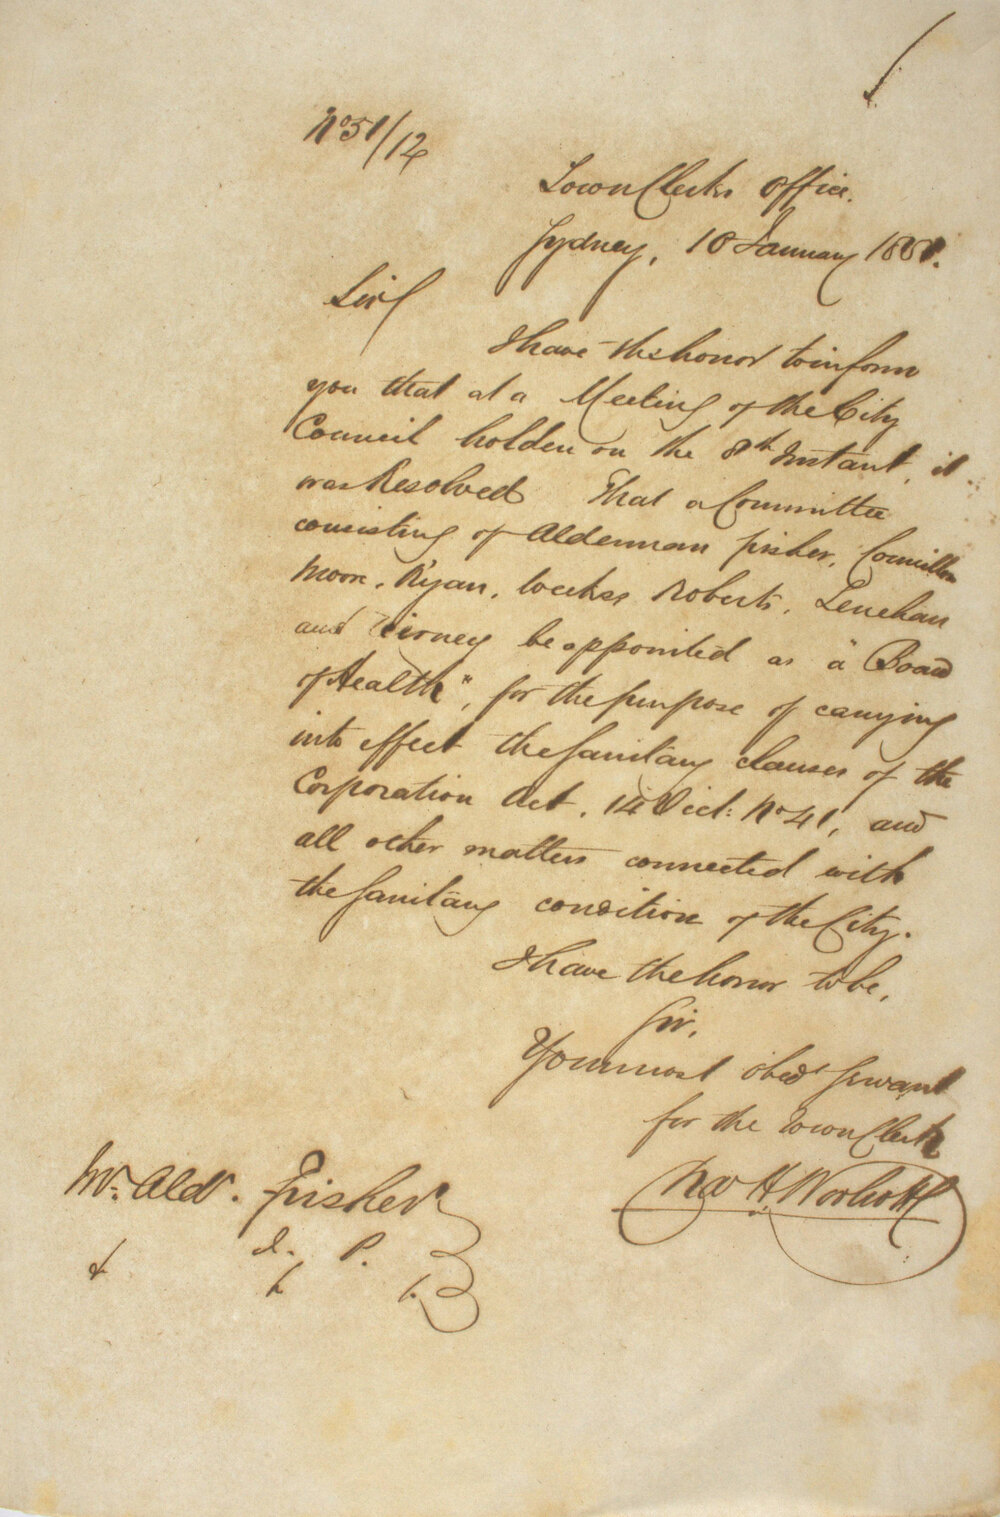 No 51/12
Town Clerks Office.
Sydney, 10 January 1851.
Sir/
I have the honor to inform
you that at a Meeting of the City
Council holden on the 8th Instant, it
was Resolved That a Committee
consisting of Alderman Fisher, Councillors
Moore, Ryan, Weekes, Roberts, Lenehan
and Tierney be appointed as "a Board
of Health", for the purpose of carrying
into effect the Sanitary clauses of the
Corporation Act, 14 Vict: No 41, and
all other matters connected with
the Sanitary condition of the City.
I have the honor to be,
Sir,
Your most obedt Servant
for the Town Clerk
H Worboth
Mr. Aldn. Fisher
J. P.